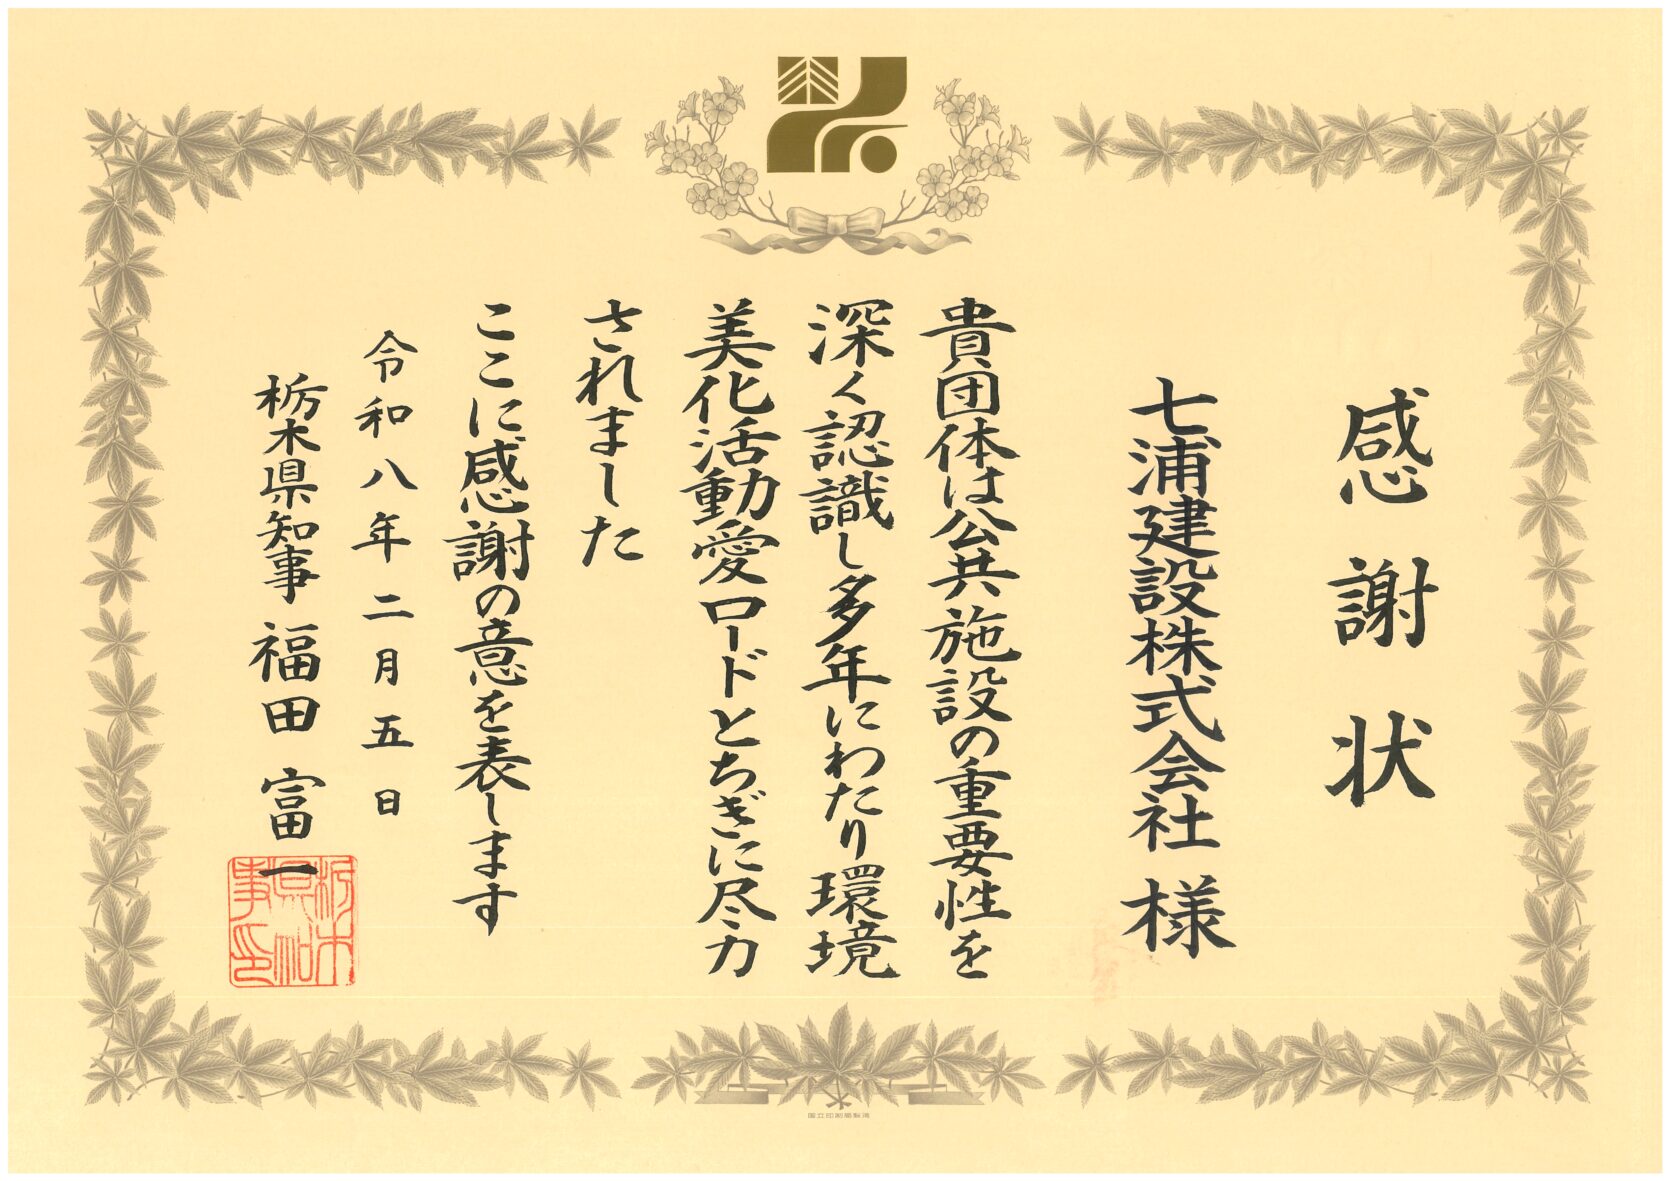 感謝状
七浦建設株式会社 様
貴団体は公共施設の重要性を
深く認識し多年にわたり環境
美化活動愛ロードとちぎに尽力
されました
ここに感謝の意を表します
令和八年二月五日
栃木県知事 福田 富一
栃木県知事印
国立印刷局製造